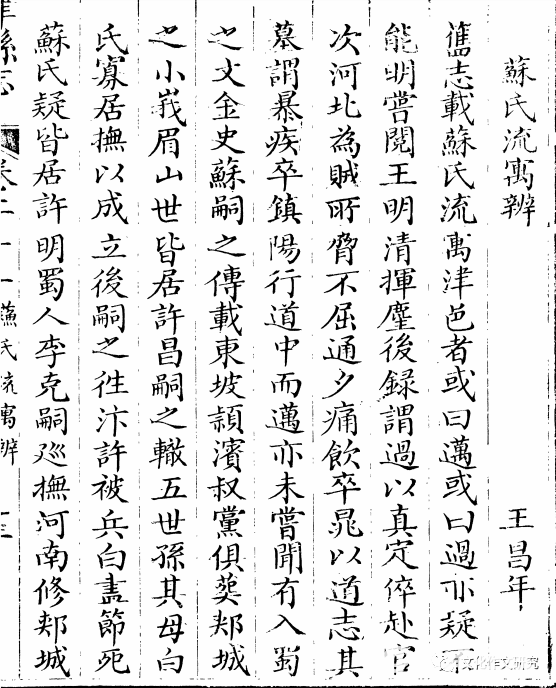 蘇氏流寓辨
王昌年
舊志載蘇氏流寓津邑者或曰邁或曰過亦疑不
能明嘗閱王明清揮麈後録謂過以真定倅赴官
次河北為賊所脅不屈通夕痛飲卒晁以道志其
墓謂暴疾卒鎮陽行道中而邁亦未嘗聞有入蜀
之文金史蘇嗣之傳載東坡潁濱叔黨俱葬郟城
之小峩眉山世皆居許昌嗣之轍五世孫其母白
氏寡居撫以成立後嗣之徃汴許被兵白盡節死
蘇氏疑皆居許明蜀人李克嗣廵撫河南修郟城
縣志
卷二十一蘇氏流寓辨
十三